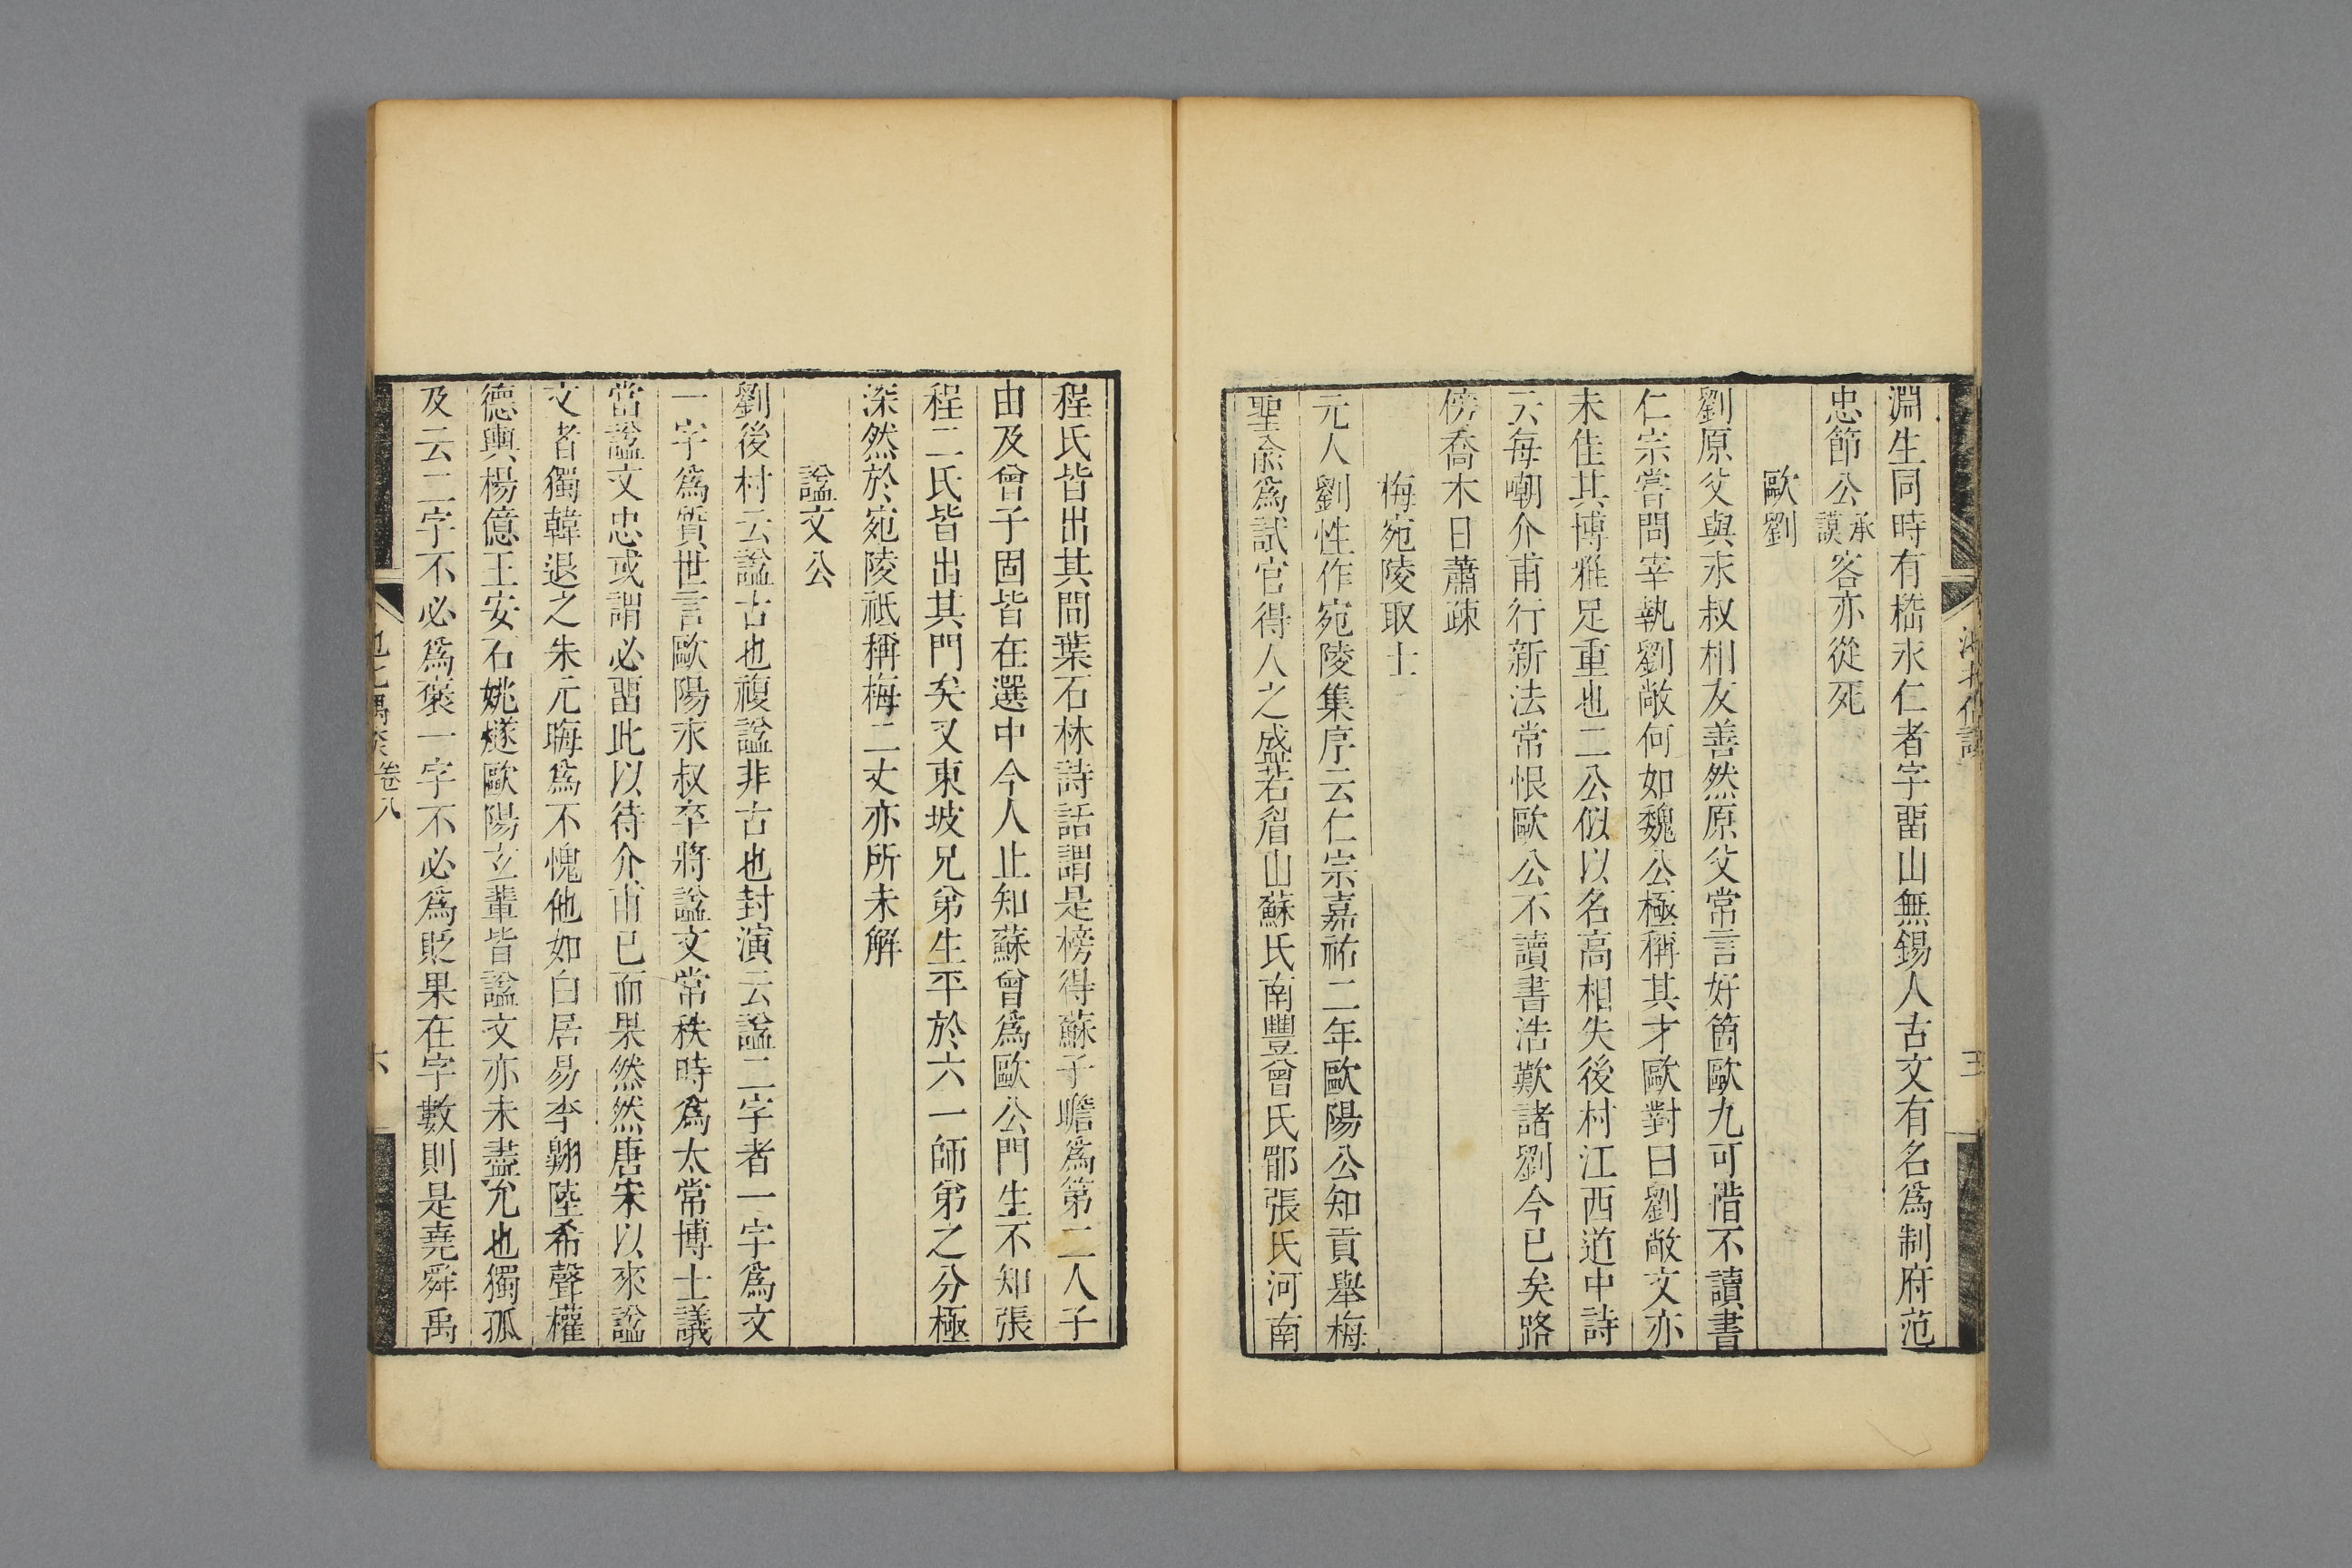 淵生同時有嵇永仁者字畱山無錫人古文有名爲制府范
忠節公承謨客亦從死
歐劉
劉原父與永叔相友善然原父常言好箇歐九可惜不讀書
仁宗嘗問宰執劉敞何如魏公極稱其才歐對曰劉敞文亦
未佳其博雅足重也二公似以名高相失後村江西道中詩
云每嘲介甫行新法常恨歐公不讀書浩歎諸劉今已矣路
傍喬木日蕭疎
梅宛陵取士
元人劉性作宛陵集序云仁宗嘉祐二年歐陽公知貢舉梅
聖俞爲試官得人之盛若眉山蘇氏南豐曾氏郿張氏河南
程氏皆出其間葉石林詩話謂是榜得蘇子瞻爲第二人子
由及曾子固皆在選中今人止知蘇曾爲歐公門生不知張
程二氏皆出其門矣又東坡兄弟生平於六一師弟之分極
深然於宛陵祗稱梅二丈亦所未解
諡文公
劉後村云諡古也複諡非古也封演云諡二字者一字爲文
一字爲質世言歐陽永叔卒將諡文常秩時爲太常博士議
當諡文忠或謂必畱此以待介甫已而果然然唐宋以來諡
文者獨韓退之朱元晦爲不愧他如白居易李翺陸希聲權
德輿楊億王安石姚燧歐陽玄輩皆諡文亦未盡允也獨孤
及云二字不必爲褒一字不必爲貶果在字數則是堯舜禹
卷八